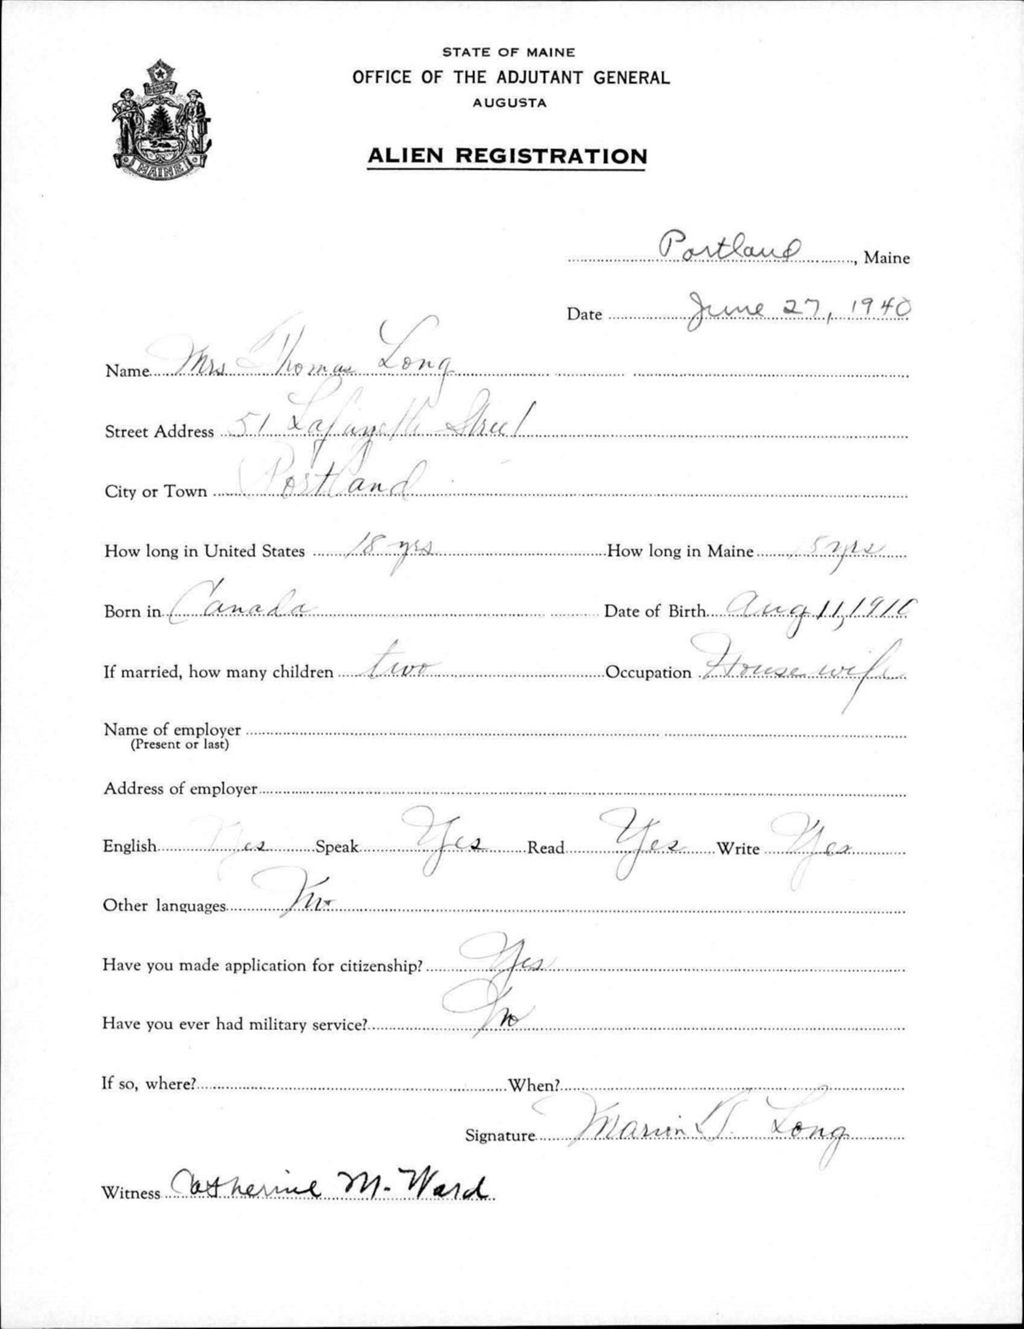 STATE OF MAINE
OFFICE OF THE ADJUTANT GENERAL
AUGUSTA
ALIEN REGISTRATION
MAINE
Portland, Maine
Date June 27, 1940
Name Mrs Thomas Long
Street Address 51 Lafayette Street
City or Town Portland
How long in United States 18 yrs How long in Maine 5 yrs
Born in Canada Date of Birth Aug 11, 1910
If married, how many children two Occupation Housewife
Name of employer
(Present or last)
Address of employer
English Yes Speak Yes Read Yes Write Yes
Other languages No
Have you made application for citizenship? Yes
Have you ever had military service? No
If so, where? When?
Signature Marion Long
Witness Catherine M. Ward